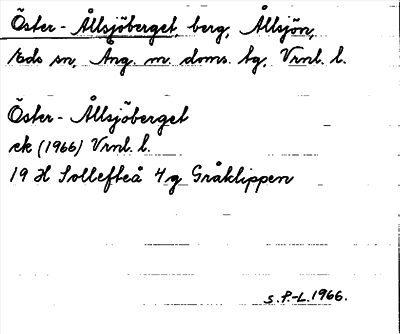 Öster-Ållsjöberget, berg, Ållsjön,
Eds sn, Ång. m. doms. tg, Vrnl. l.
Öster-Ållsjöberget
ek (1966) Vrnl. l.
19 H Sollefteå 4g Gråklippen
S.P.-L. 1966.